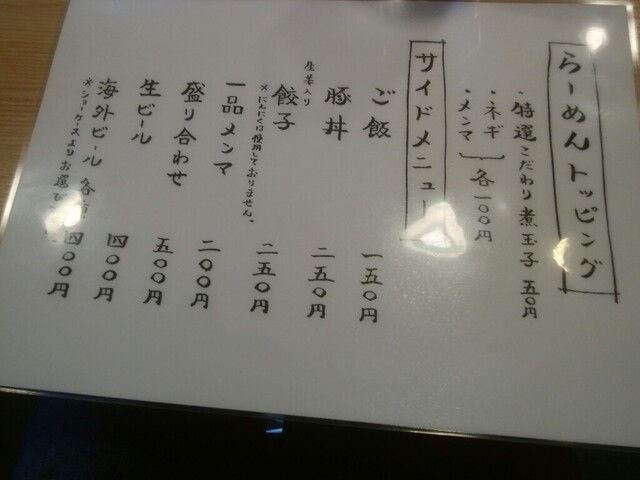 らーめんトッピング
・特選こだわり煮玉子 五〇円
・ネギ
・メンマ 各一〇〇円
サイドメニュー
ご飯 一五〇円
豚丼 二五〇円
生姜入り
餃子 二五〇円
※にんにくは使用しておりません。
一品メンマ 二〇〇円
盛り合わせ 五〇〇円
生ビール 四〇〇円
海外ビール 各 四〇〇円
※ショーケースよりお選び